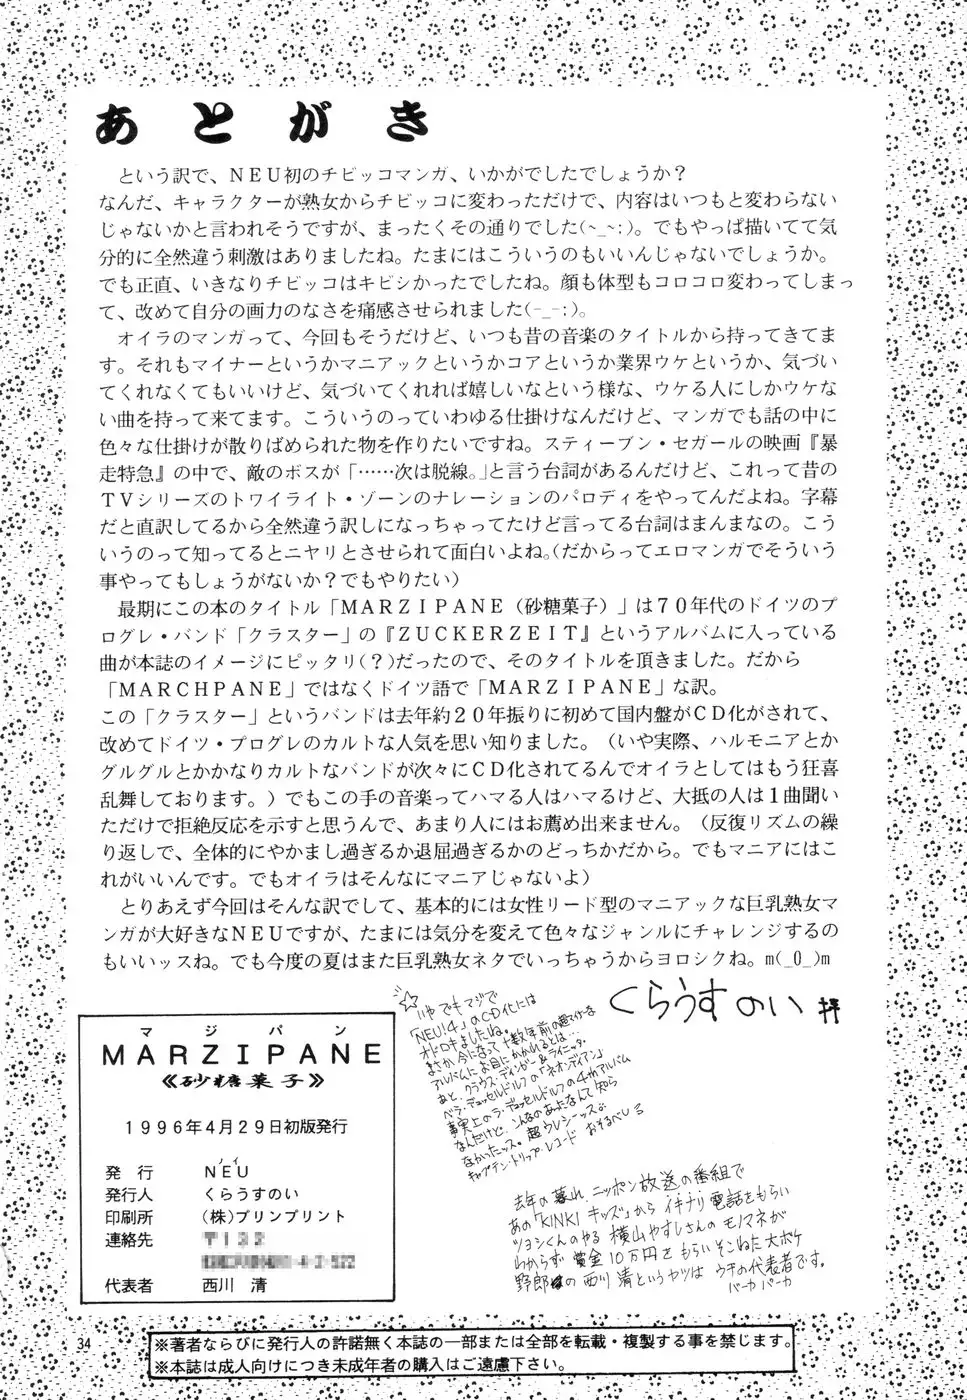 あとがき
　という訳で、ＮＥＵ初のチビッコマンガ、いかがでしたでしょうか？
なんだ、キャラクターが熟女からチビッコに変わっただけで、内容はいつもと変わらない
じゃないかと言われそうですが、まったくその通りでした(~_~;)。でもやっぱ描いてて気
分的に全然違う刺激はありましたね。たまにはこういうのもいいんじゃないでしょうか。
でも正直、いきなりチビッコはキビシかったでしたね。顔も体型もコロコロ変わってしまっ
て、改めて自分の画力のなさを痛感させられました(-_-;)。
　オイラのマンガって、今回もそうだけど、いつも昔の音楽のタイトルから持ってきてま
す。それもマイナーというかマニアックというかコアというか業界ウケというか、気づい
てくれなくてもいいけど、気づいてくれれば嬉しいなという様な、ウケる人にしかウケな
い曲を持って来てます。こういうのっていわゆる仕掛けなんだけど、マンガでも話の中に
色々な仕掛けが散りばめられた物を作りたいですね。スティーブン・セガールの映画『暴
走特急』の中で、敵のボスが「……次は脱線。」と言う台詞があるんだけど、これって昔の
ＴＶシリーズのトワイライト・ゾーンのナレーションのパロディをやってんだよね。字幕
だと直訳してるから全然違う訳しになっちゃってたけど言ってる台詞はまんまなの。こう
いうのって知ってるとニヤリとさせられて面白いよね。(だからってエロマンガでそういう
事やってもしょうがないか？でもやりたい)
　最期にこの本のタイトル「ＭＡＲＺＩＰＡＮＥ（砂糖菓子）」は７０年代のドイツのプ
ログレ・バンド「クラスター」の『ＺＵＣＫＥＲＺＥＩＴ』というアルバムに入っている
曲が本誌のイメージにピッタリ(？)だったので、そのタイトルを頂きました。だから
「ＭＡＲＣＨＰＡＮＥ」ではなくドイツ語で「ＭＡＲＺＩＰＡＮＥ」な訳。
この「クラスター」というバンドは去年約２０年振りに初めて国内盤がＣＤ化がされて、
改めてドイツ・プログレのカルトな人気を思い知りました。（いや実際、ハルモニアとか
グルグルとかかなりカルトなバンドが次々にＣＤ化されてるんでオイラとしてはもう狂喜
乱舞しております。）でもこの手の音楽ってハマる人はハマるけど、大抵の人は１曲聞い
ただけで拒絶反応を示すと思うんで、あまり人にはお薦め出来ません。（反復リズムの繰
り返しで、全体的にやかまし過ぎるか退屈過ぎるかのどっちかだから。でもマニアにはこ
れがいいんです。でもオイラはそんなにマニアじゃないよ）
　とりあえず今回はそんな訳でして、基本的には女性リード型のマニアックな巨乳熟女マ
ンガが大好きなＮＥＵですが、たまには気分を変えて色々なジャンルにチャレンジするの
もいいッスね。でも今度の夏はまた巨乳熟女ネタでいっちゃうからヨロシクね。m(_O_)m
くらうすのい 拝
☆いやでもマジで
「NEU!4」のCD化には
オドロキましたね。
まさか今になって十数年前の超マイナーな
アルバムにお目にかかれるとは…
あと、クラウス・ディンガー&ライニング・
ラ・デュッセルドルフの「ネオンディアン」
事実上のラ・デュッセルドルフの4thアルバム
なんだけど、こんなのあったなんて知ら
なかったッス。超ウレシーッス。
キャプテン・トリップ・レコード おそるべしる
去年の暮れ、ニッポン放送の番組で
あの「KINKI キッズ」からイキナリ電話をもらい
ツヨシくんのやる横山やすしさんのモノマネが
わからず賞金10万円をもらいそこねた大ボケ
野郎の西川清というヤツはウチの代表者です。
バーカ バーカ
マジパン
ＭＡＲＺＩＰＡＮＥ
≪砂糖菓子≫
１９９６年４月２９日初版発行
発　行　ＮＥＵ
ノイ
発行人　くらうすのい
印刷所　（株）プリンプリント
連絡先　〒１３２
4-2-522
代表者　西川　清
34
※著者ならびに発行人の許諾無く本誌の一部または全部を転載・複製する事を禁じます。
※本誌は成人向けにつき未成年者の購入はご遠慮下さい。